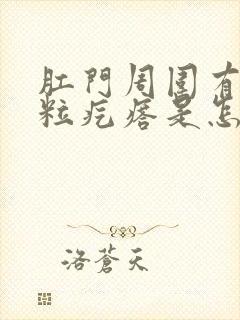 肛門周圍有
粒疙瘩是怎
洛蒼天